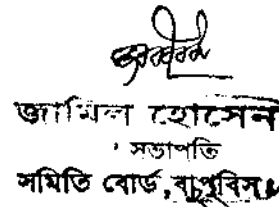 জামিল হোসেন
সভাপতি
সমিতি বোর্ড,